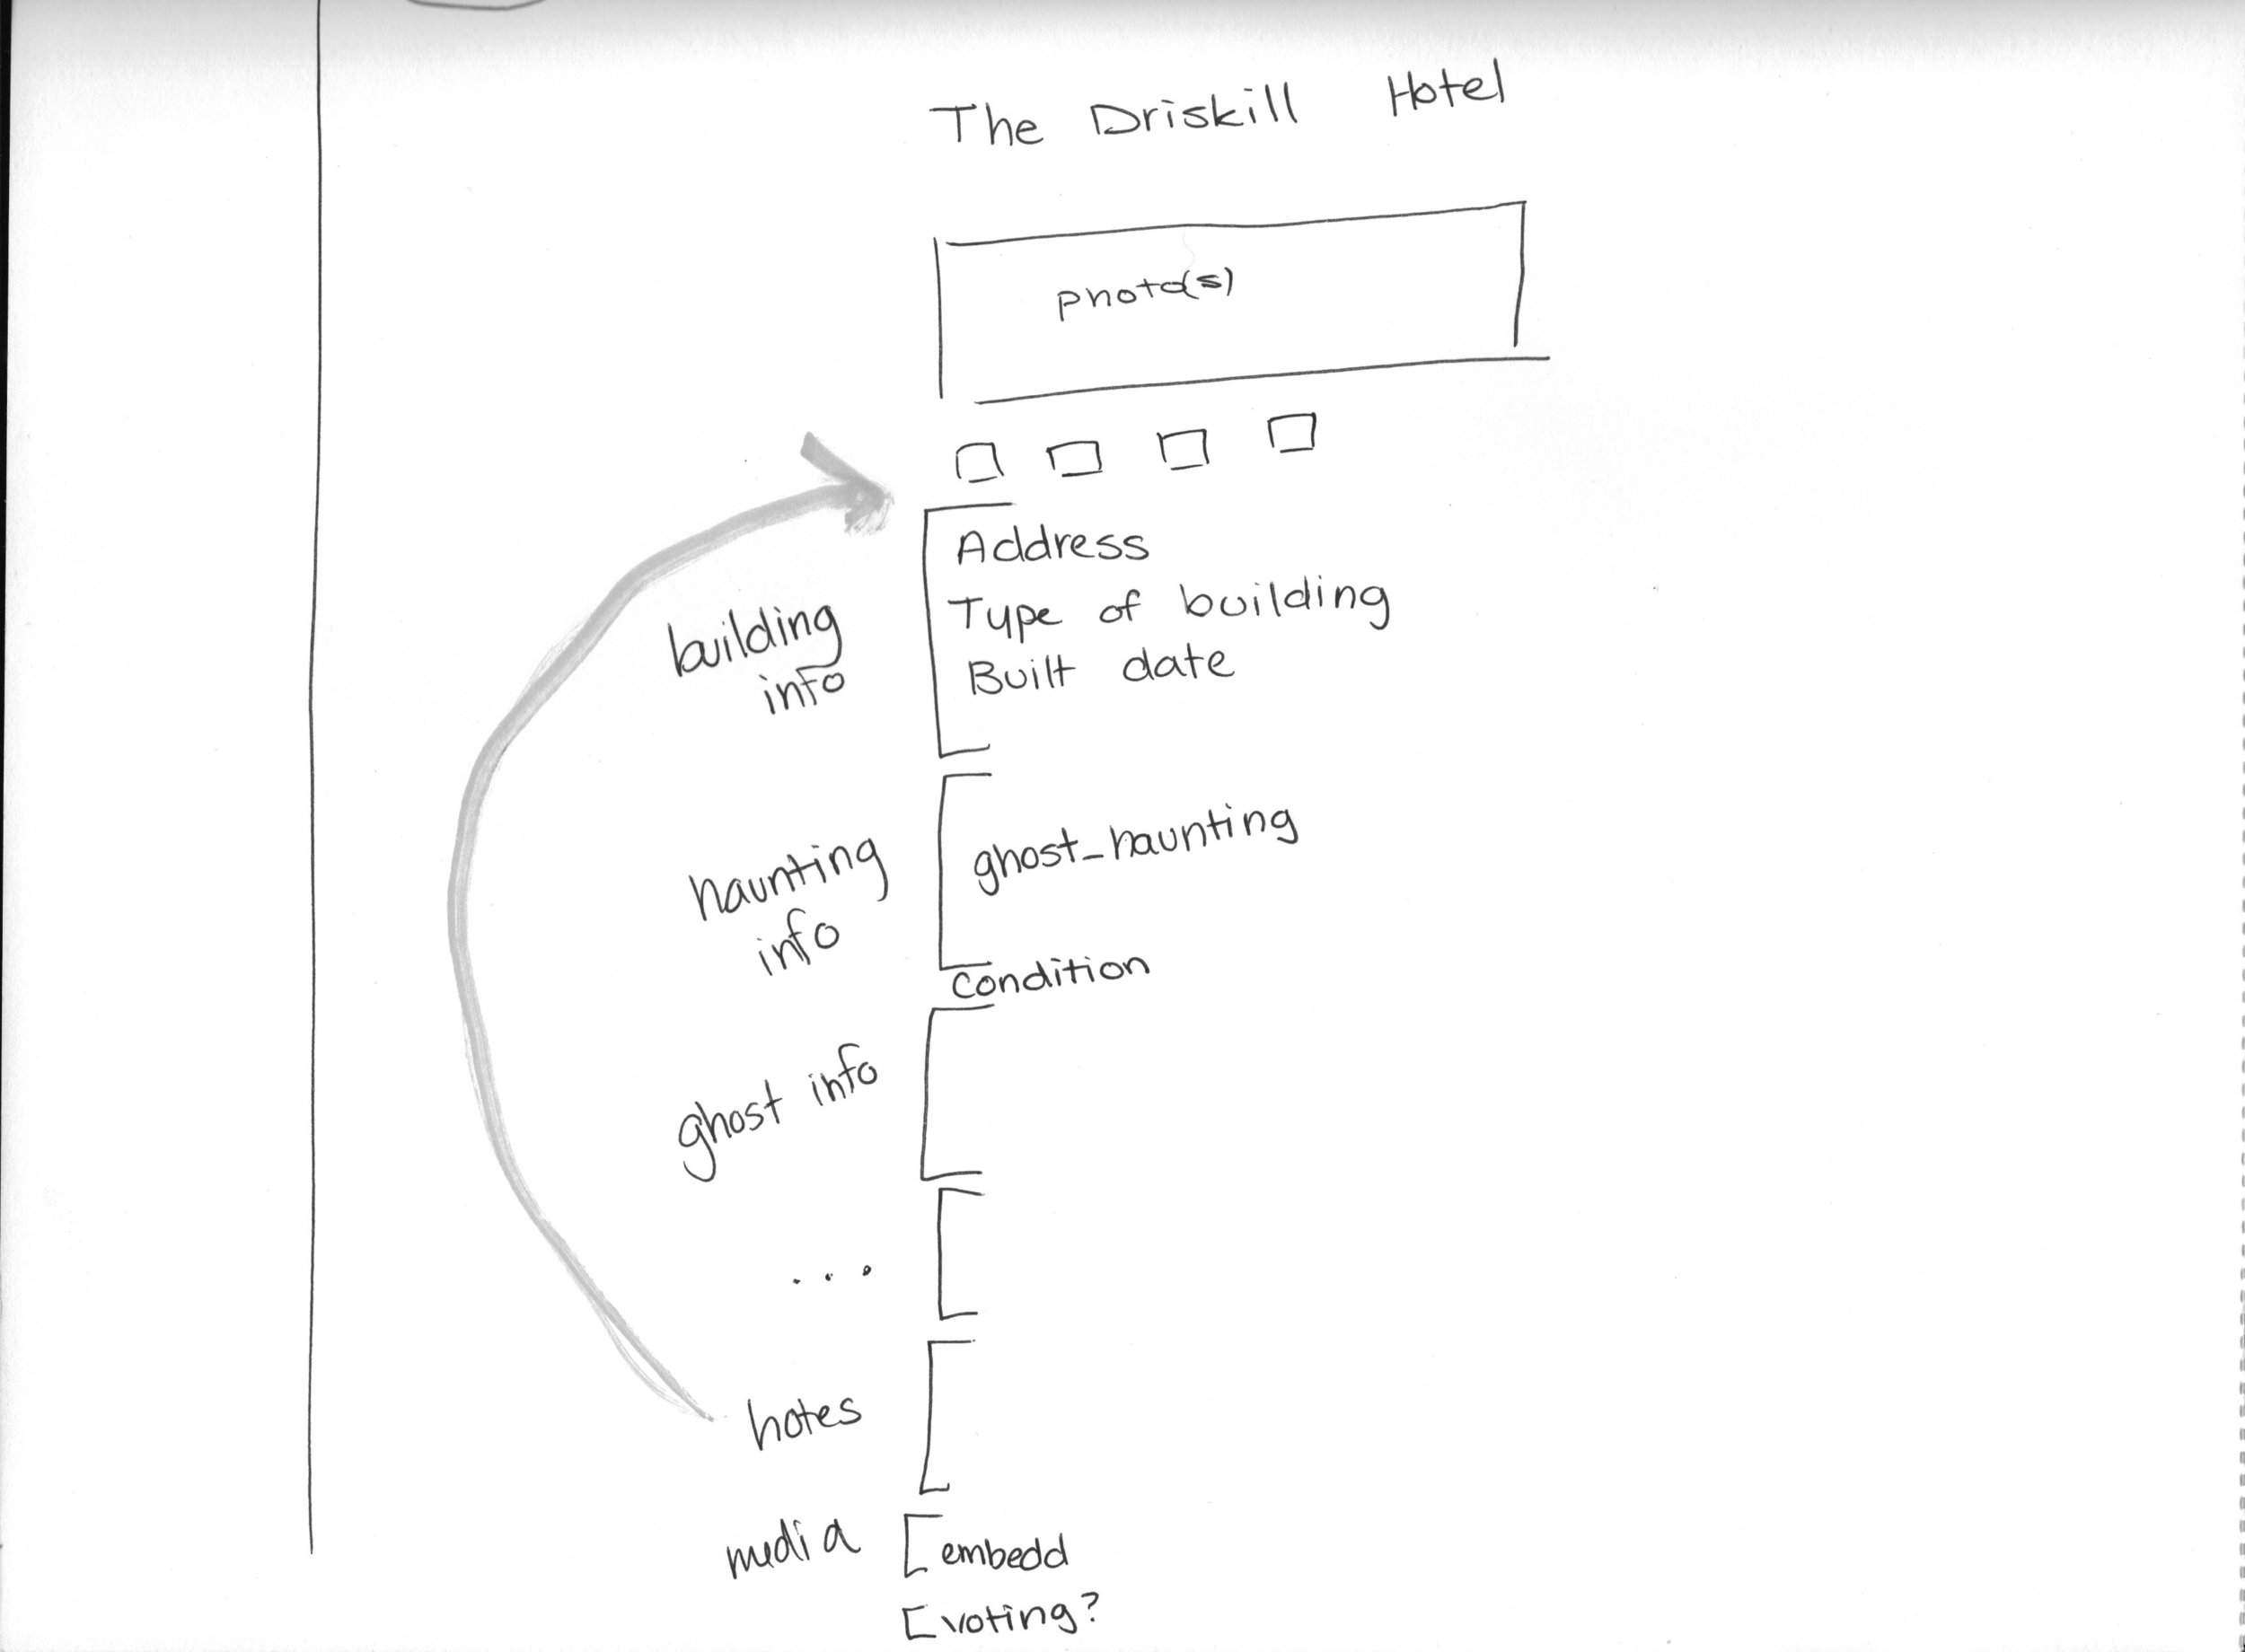 The Driskill Hotel
photo(s)
building
info
Address
Type of building
Built date
haunting
info
ghost_haunting
Condition
ghost info
...
notes
media
embedd
voting?